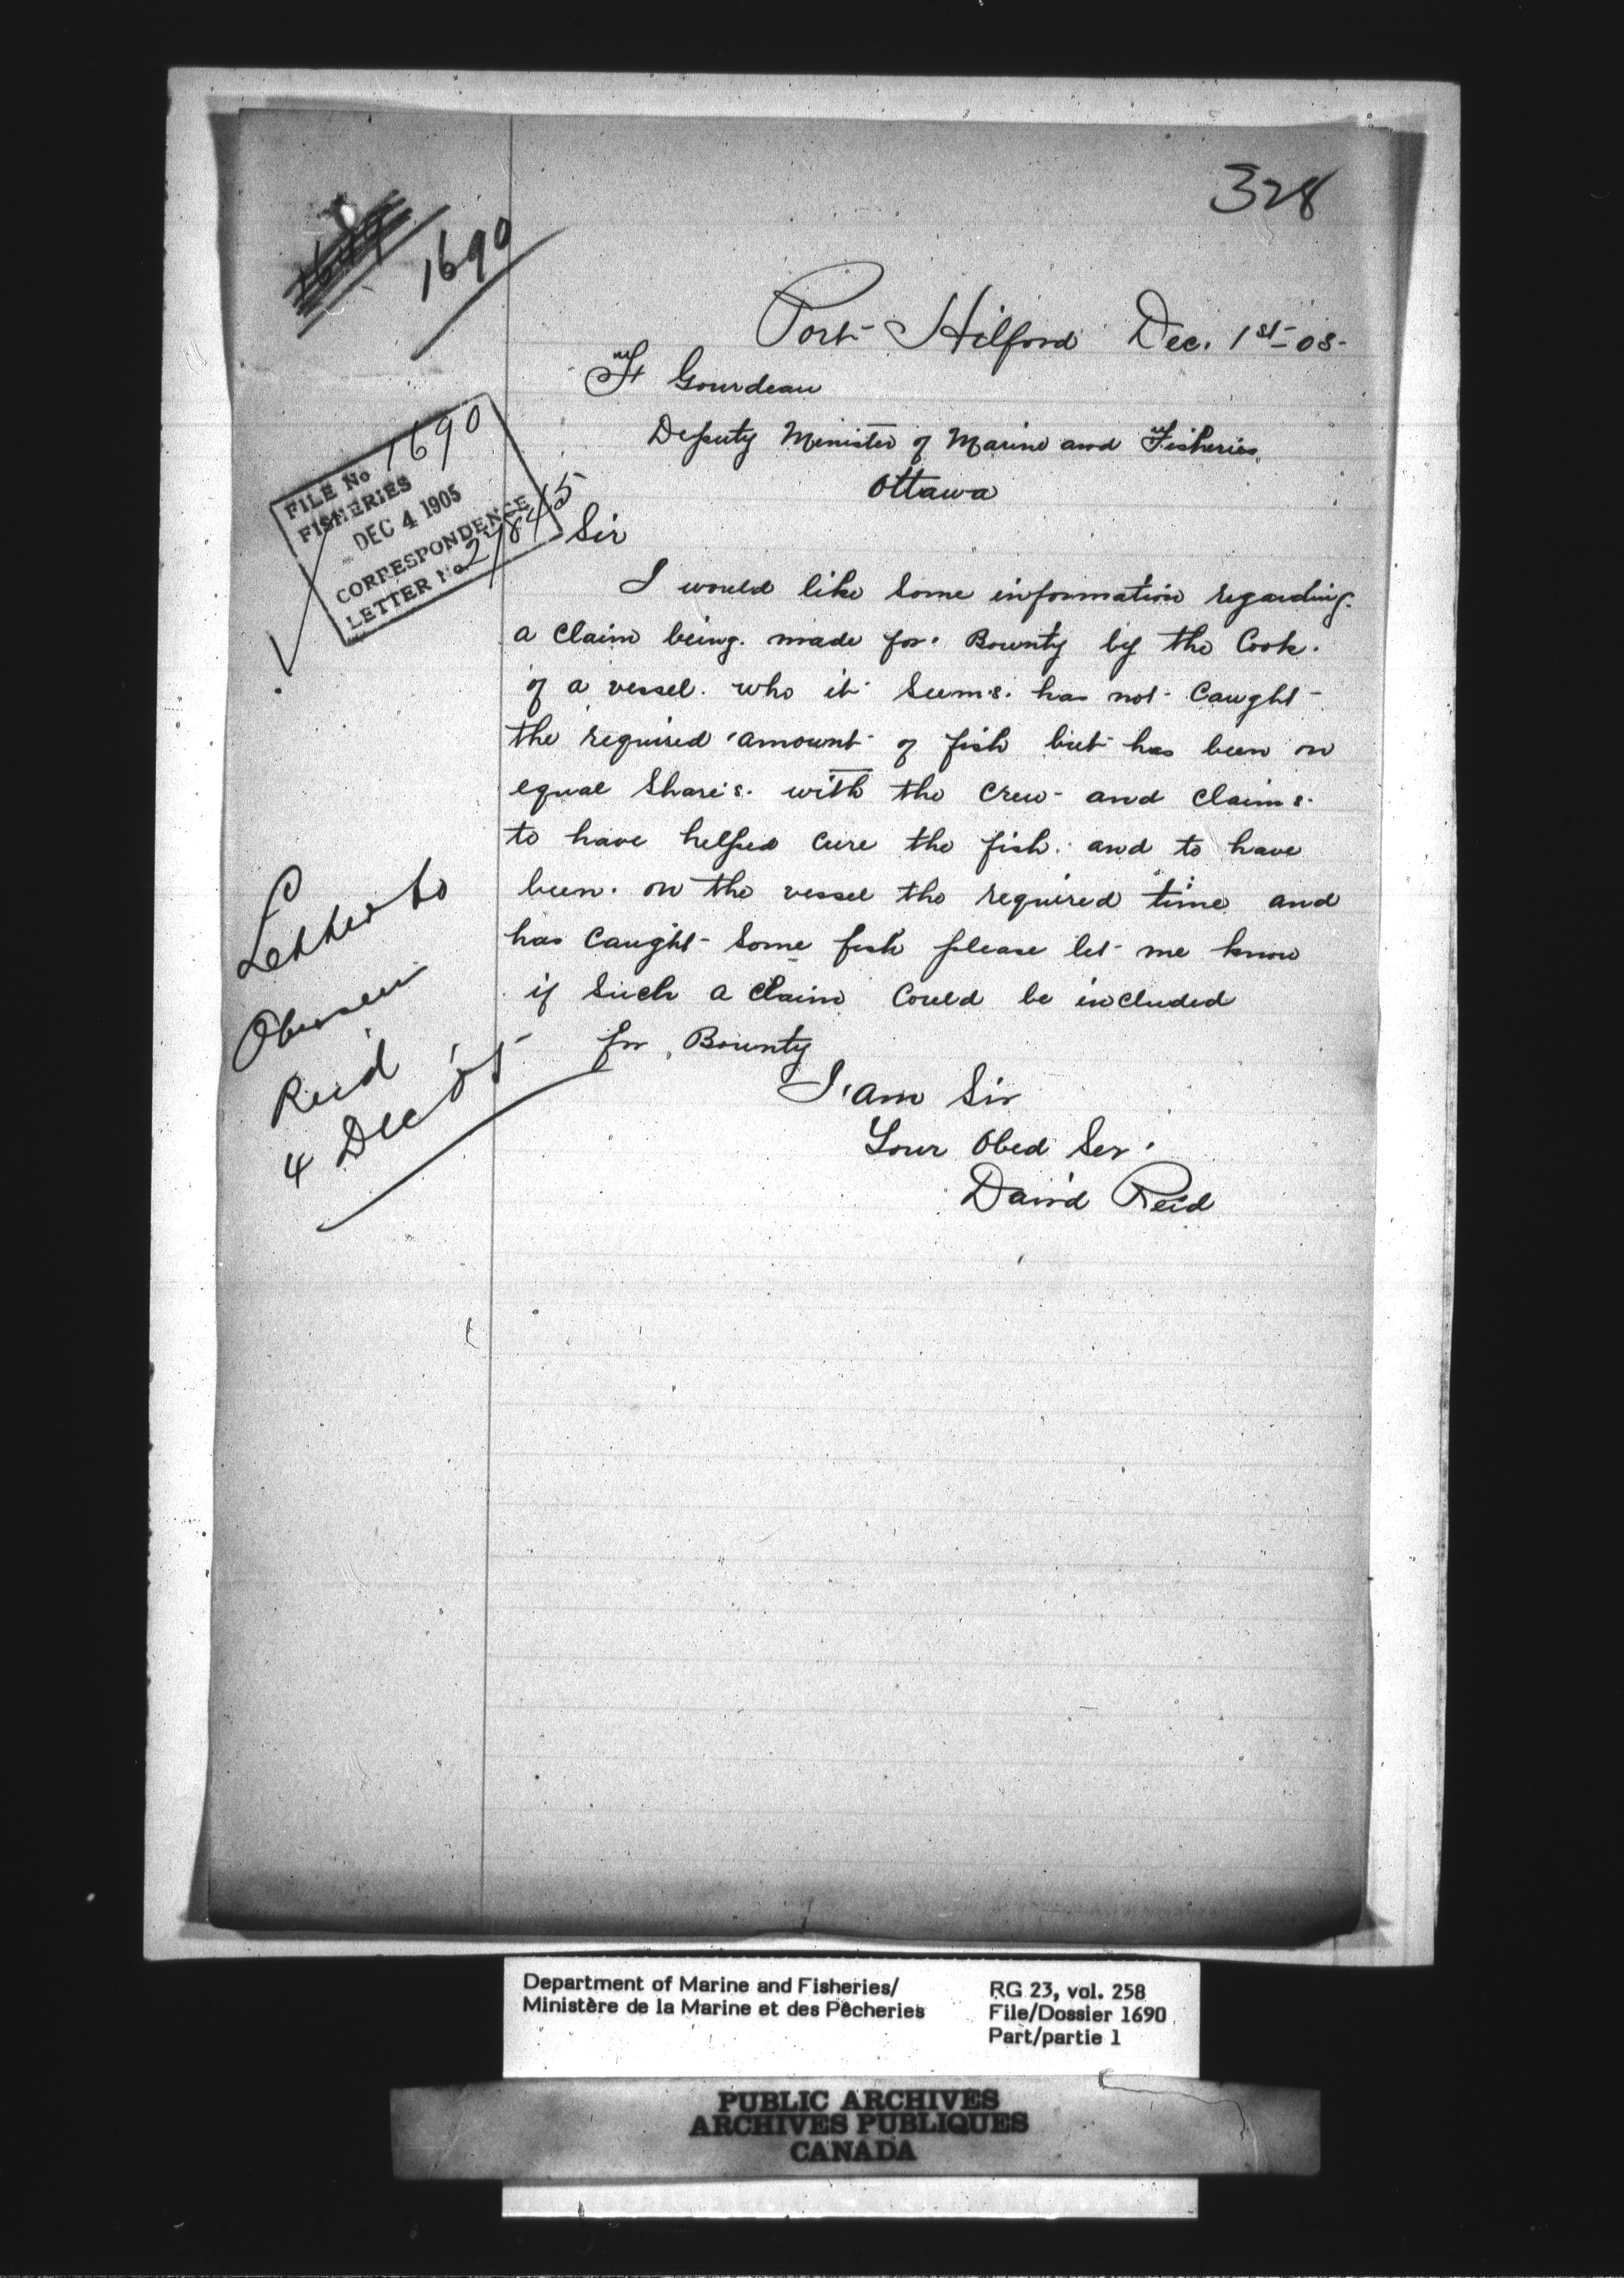 328
1690
Port Hilford Dec. 1st - 05.
F Gourdeau
Deputy Minister of Marine and Fisheries,
Ottawa
FILE No 1690
FISHERIES
DEC 4 1905
CORRESPONDENCE
LETTER No.
Sir
I would like some information regarding.
a claim being. made for. Bounty by the Cook.
of a vessel. who it seems. has not caught
the required amount of fish but has been on
equal share's. with the crew and claims.
to have helped cure the fish. and to have
been. on the vessel the required time and
has caught some fish please let me know
if such a claim could be included
for Bounty
I am Sir
Your Obed Ser.
David Reid
Letter to
Overseer
Reid
4 Dec '05
Department of Marine and Fisheries/
Ministère de la Marine et des Pêcheries
RG 23, vol. 258
File/Dossier 1690
Part/partie 1
PUBLIC ARCHIVES
ARCHIVES PUBLIQUES
CANADA